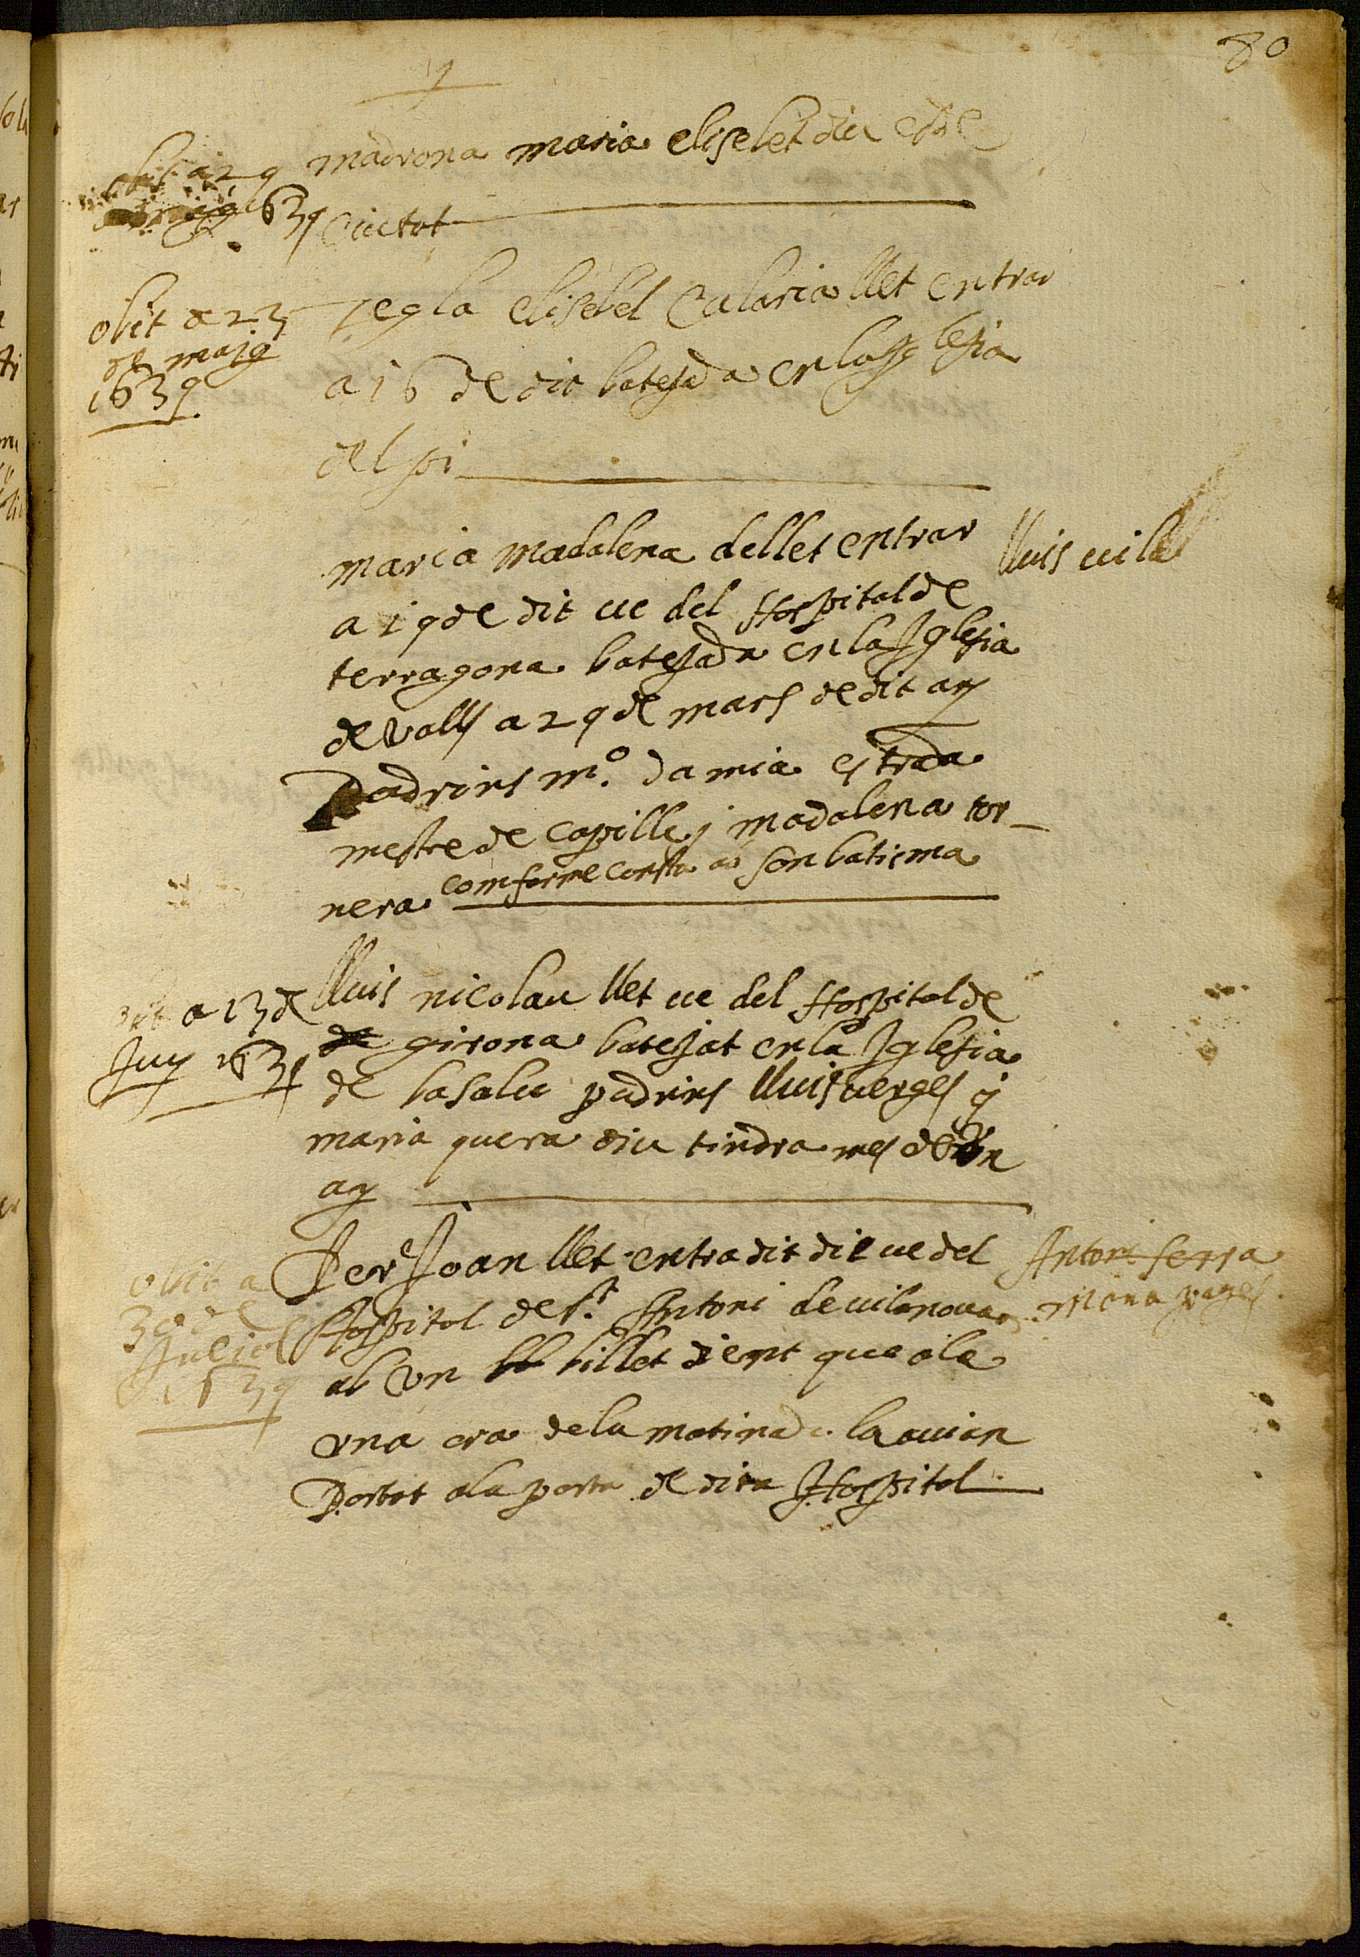 80
obit a 29
maig 1639
madrona maria elisebet diu esse
ciutot
obit a 23
de maig
1639
tegla elisebet Eularia llet entrar
a 16 de dit batejada en la Jglesia
del pi
maria madalena dellet entrar
a 19 de dit ve del Hospital de
terragona batejada en la Jglesia
de valls a 29 de mars de dit ay
Padrins mº. damia estrada
mestre de capilla y madalena tor_
nera comforme consta ab son batisma
lluis vila
obit a 13 de
Juny 1639
lluis nicolau llet ve del Hospital de
de girona batejat en la Jglesia
de basalu padrins lluis verges y
maria quera diu tindra mes de un
ay
obit a
30 de
Juliol
1639
Pere Joan llet entra dit die ve del
Hospital de st Antoni de vilanova
ab vn billet dient que a la
vna ora de la matinada la avian
Portat a la porta de dita Hospital
Antoni serra
Mona pages